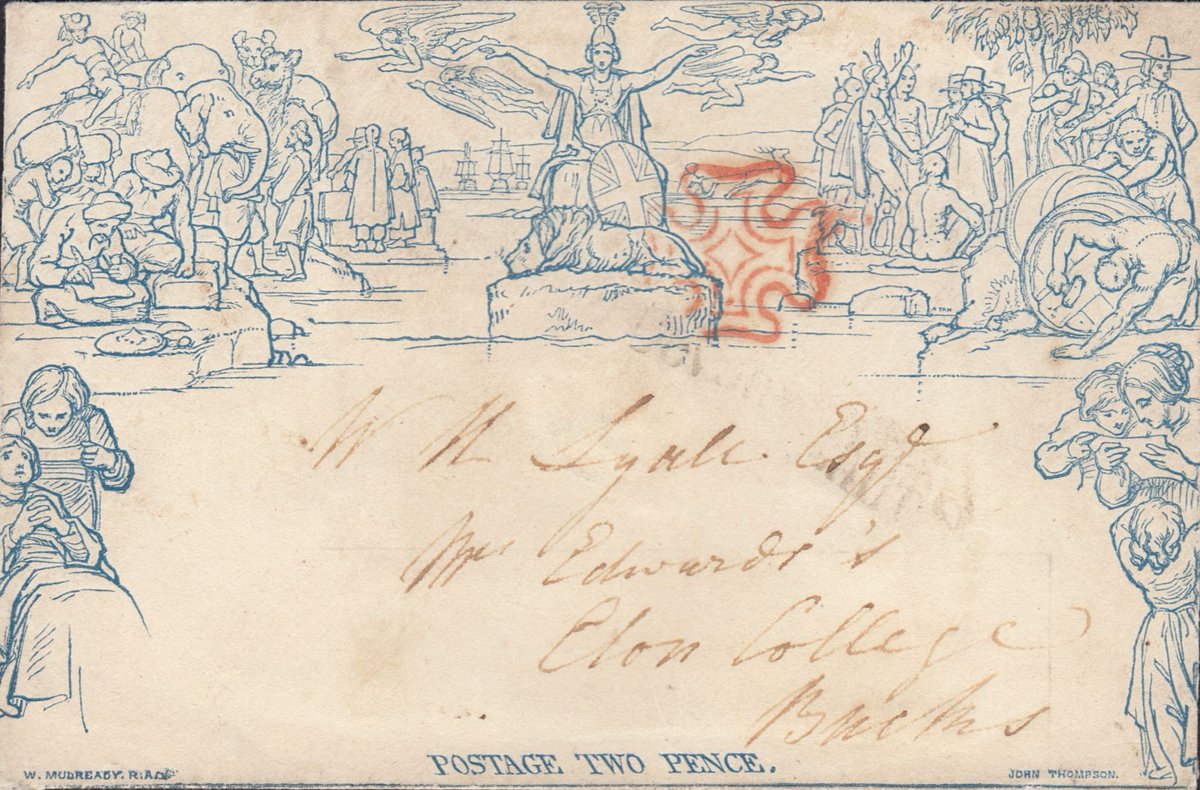 W H Lyall Esqr
Mrs Edwards's
Eton College
Bucks
POSTAGE TWO PENCE.
W. MULREADY. R.A.
JOHN THOMPSON.